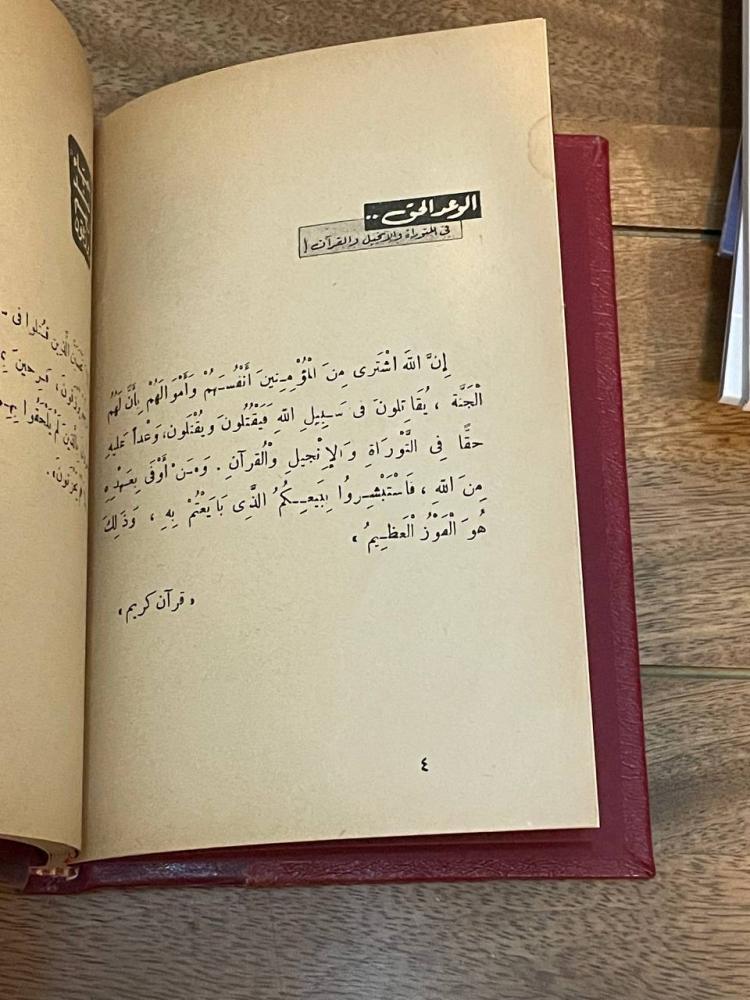 الوعد الحق ..
في التوراة والإنجيل والقرآن !
إِنَّ اللهَ اشْتَرى مِنَ الْمُؤْمِنِينَ أَنْفُسَهُمْ وَأَمْوَالَهُمْ بِأَنَّ لَهُمُ
الْجَنَّةَ ، يُقَاتِلونَ فى سَبِيلِ اللهِ فَيَقْتُلُونَ وَيُقْتَلون، وَعْداً عَلَيهِ
حقًّا فِي التَّوْرَاةِ وَالإِنْجيلِ وَالْقُرآنِ . وَمَنْ أَوْفَى بِعَهْدِهِ
مِنَ اللهِ ، فَاسْتَبْشِرُوا بِبَيعِكُمُ الَّذِى بَايَعْتُمْ بِهِ ، وَذَلِكَ
هُوَ الْفَوْزُ الْعَظِيمُ ،
« قرآن كريم »
٤
الَّذِين قُتِلوا فى
فَرِحينَ
لَمْ يَلْحَقُوا بِهِمْ